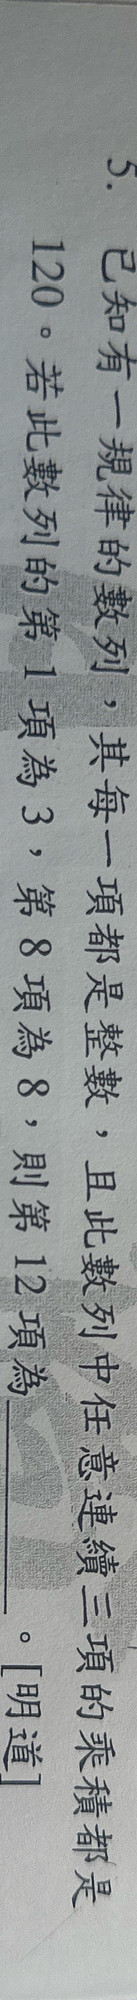 5. 已知有一規律的數列，其每一項都是整數，且此數列中任意連續三項的乘積都是
120。若此數列的第 1 項為 3，第 8 項為 8，則第 12 項為______。[明道]